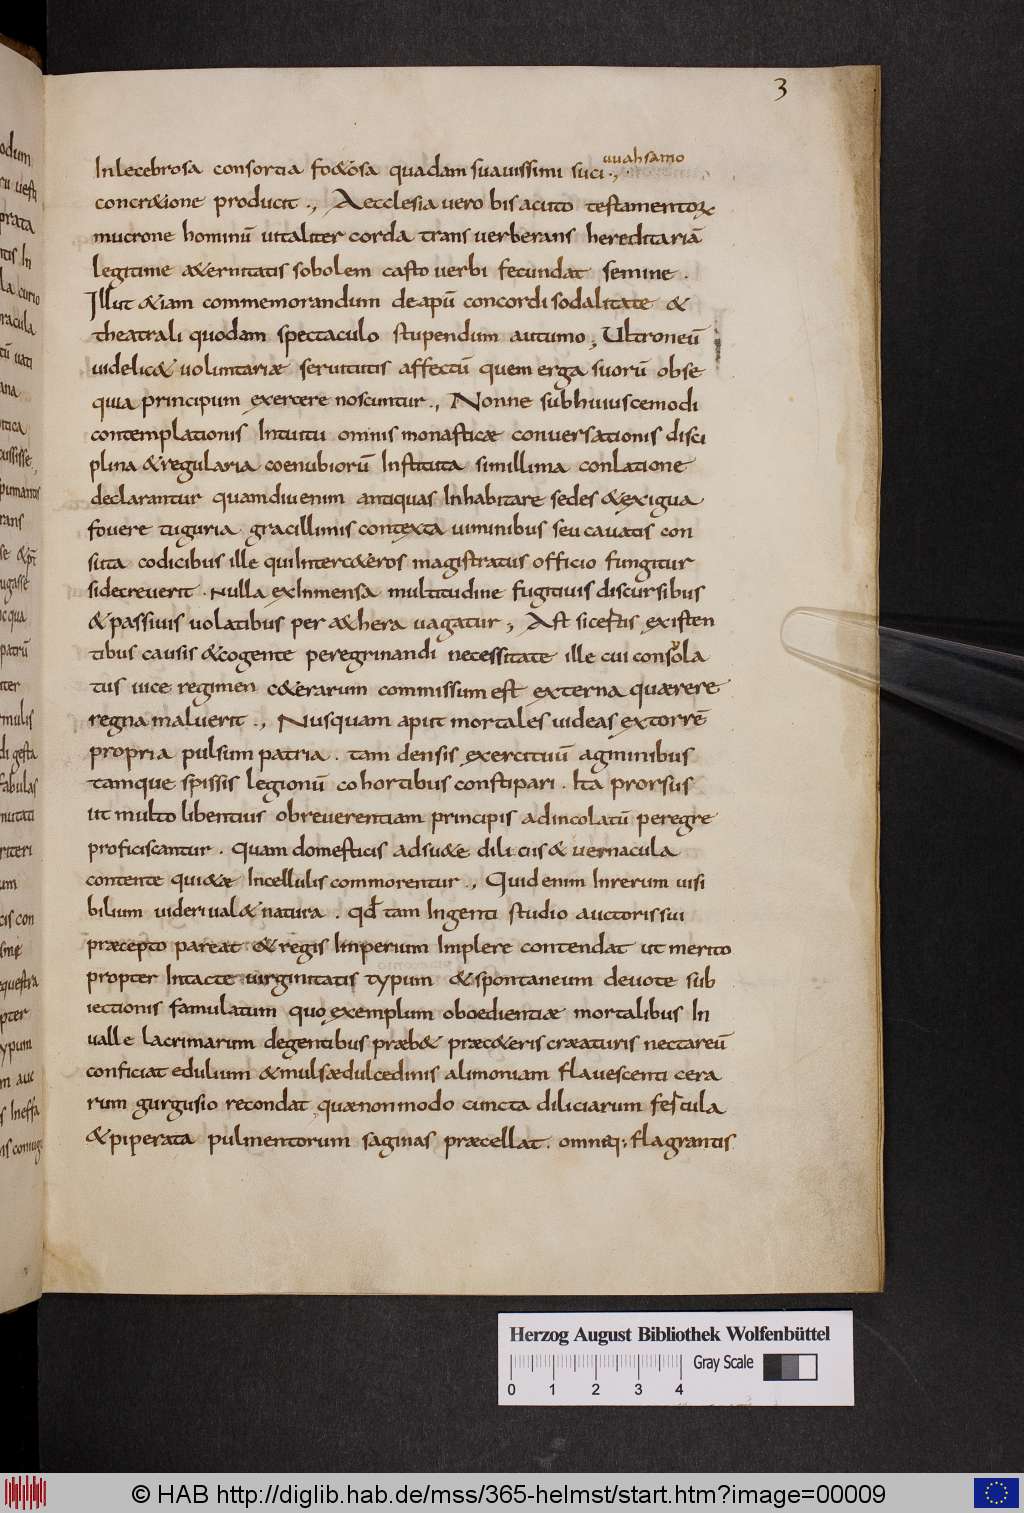 3
uuahsamo
Inlecebrosa consortia foetosa quadam suauissimi suci .,
concretione producit ., Aecclesia uero bis acuto testamentoꝝ
mucrone hominū uitaliter corda trans uerberans hereditariā
legitime aeternitatis sobolem casto uerbi fecundat semine .
Illut etiam commemorandum de apū concordi sodalitate et
theatrali quodam spectaculo stupendum autumo ; Ultroneū
uidelicet uoluntariae seruitutis affectū quem erga suorū obse
quia principum exercere noscuntur ., Nonne sub huiuscemodi
contemplationis Intuitu omnis monasticae conuersationis disci
plina et regularia coenubiorū Instituta simillima conlatione
declarantur quamdiu enim antiquas Inhabitare sedes et exigua
fouere tuguria gracillimis contexta uiminibus seu cauatis con
sita codicibus ille qui Inter ceteros magistratus officio fungitur
sidecreuerit . Nulla ex Inmensa multitudine fugitiuis discursibus
et passiuis uolatibus per aethera uagatur ; Ast si certis existen
tibus causis et cogente peregrinandi necessitate ille cui consola
tus uice regimen ceterarum commissum est externa quaerere
regna maluerit ., Nusquam aput mortales uideas extorrē
propria pulsum patria . tam densis exercituū agminibus
tamque spissis legionū cohortibus constipari . Ita prorsus
ut multo libentius ob reuerentiam principis ad incolatū peregre
proficiscantur . quam domesticis adsuete diliciis et uernacula
contente quietae In cellulis commorentur ., Quid enim In rerum uisi
bilium uideri ualet natura . qđ tam Ingenti studio auctoris sui
praecepto pareat et regis Imperium Implere contendat ut merito
propter Intacte uirginitatis typum et spontaneum deuote sub
iectionis famulatum quo exemplum oboedientiae mortalibus In
ualle lacrimarum degentibus praebet praeceteris craeaturis nectareū
conficiat edulium et mulsae dulcedinis alimoniam flauescenti cera
rum gurgusio recondat quae non modo cuncta diliciarum fercula
et piperata pulmentorum saginas praecellat . omneq; flagrantis
Herzog August Bibliothek Wolfenbüttel
Gray Scale
0 1 2 3 4
© HAB http://diglib.hab.de/mss/365-helmst/start.htm?image=00009